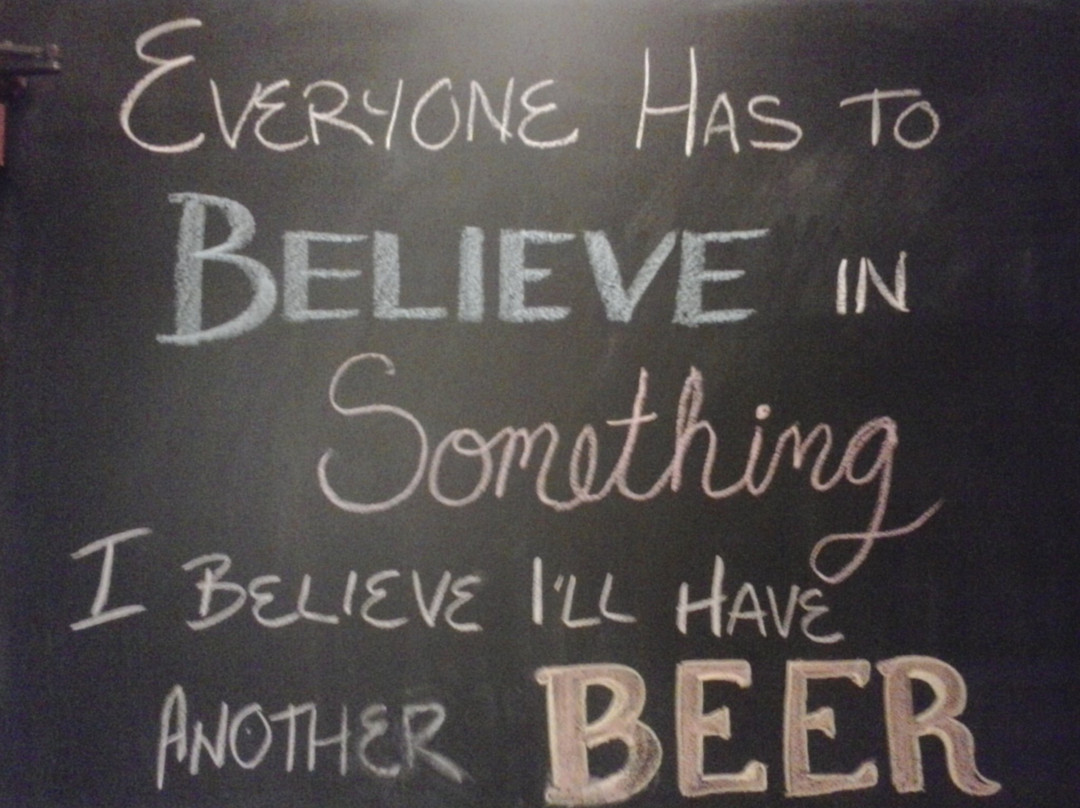 Everyone Has to
Believe in
Something
I Believe I'll Have
Another BEER